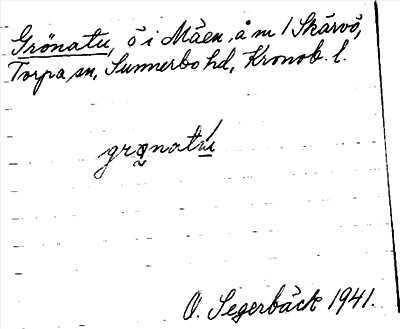 Grönatu, ö i Måen å m / Skärvö,
Torpa sn, Sunnerbo hd, Kronob. l.
grønatu̲
O. Segerbäck 1941.